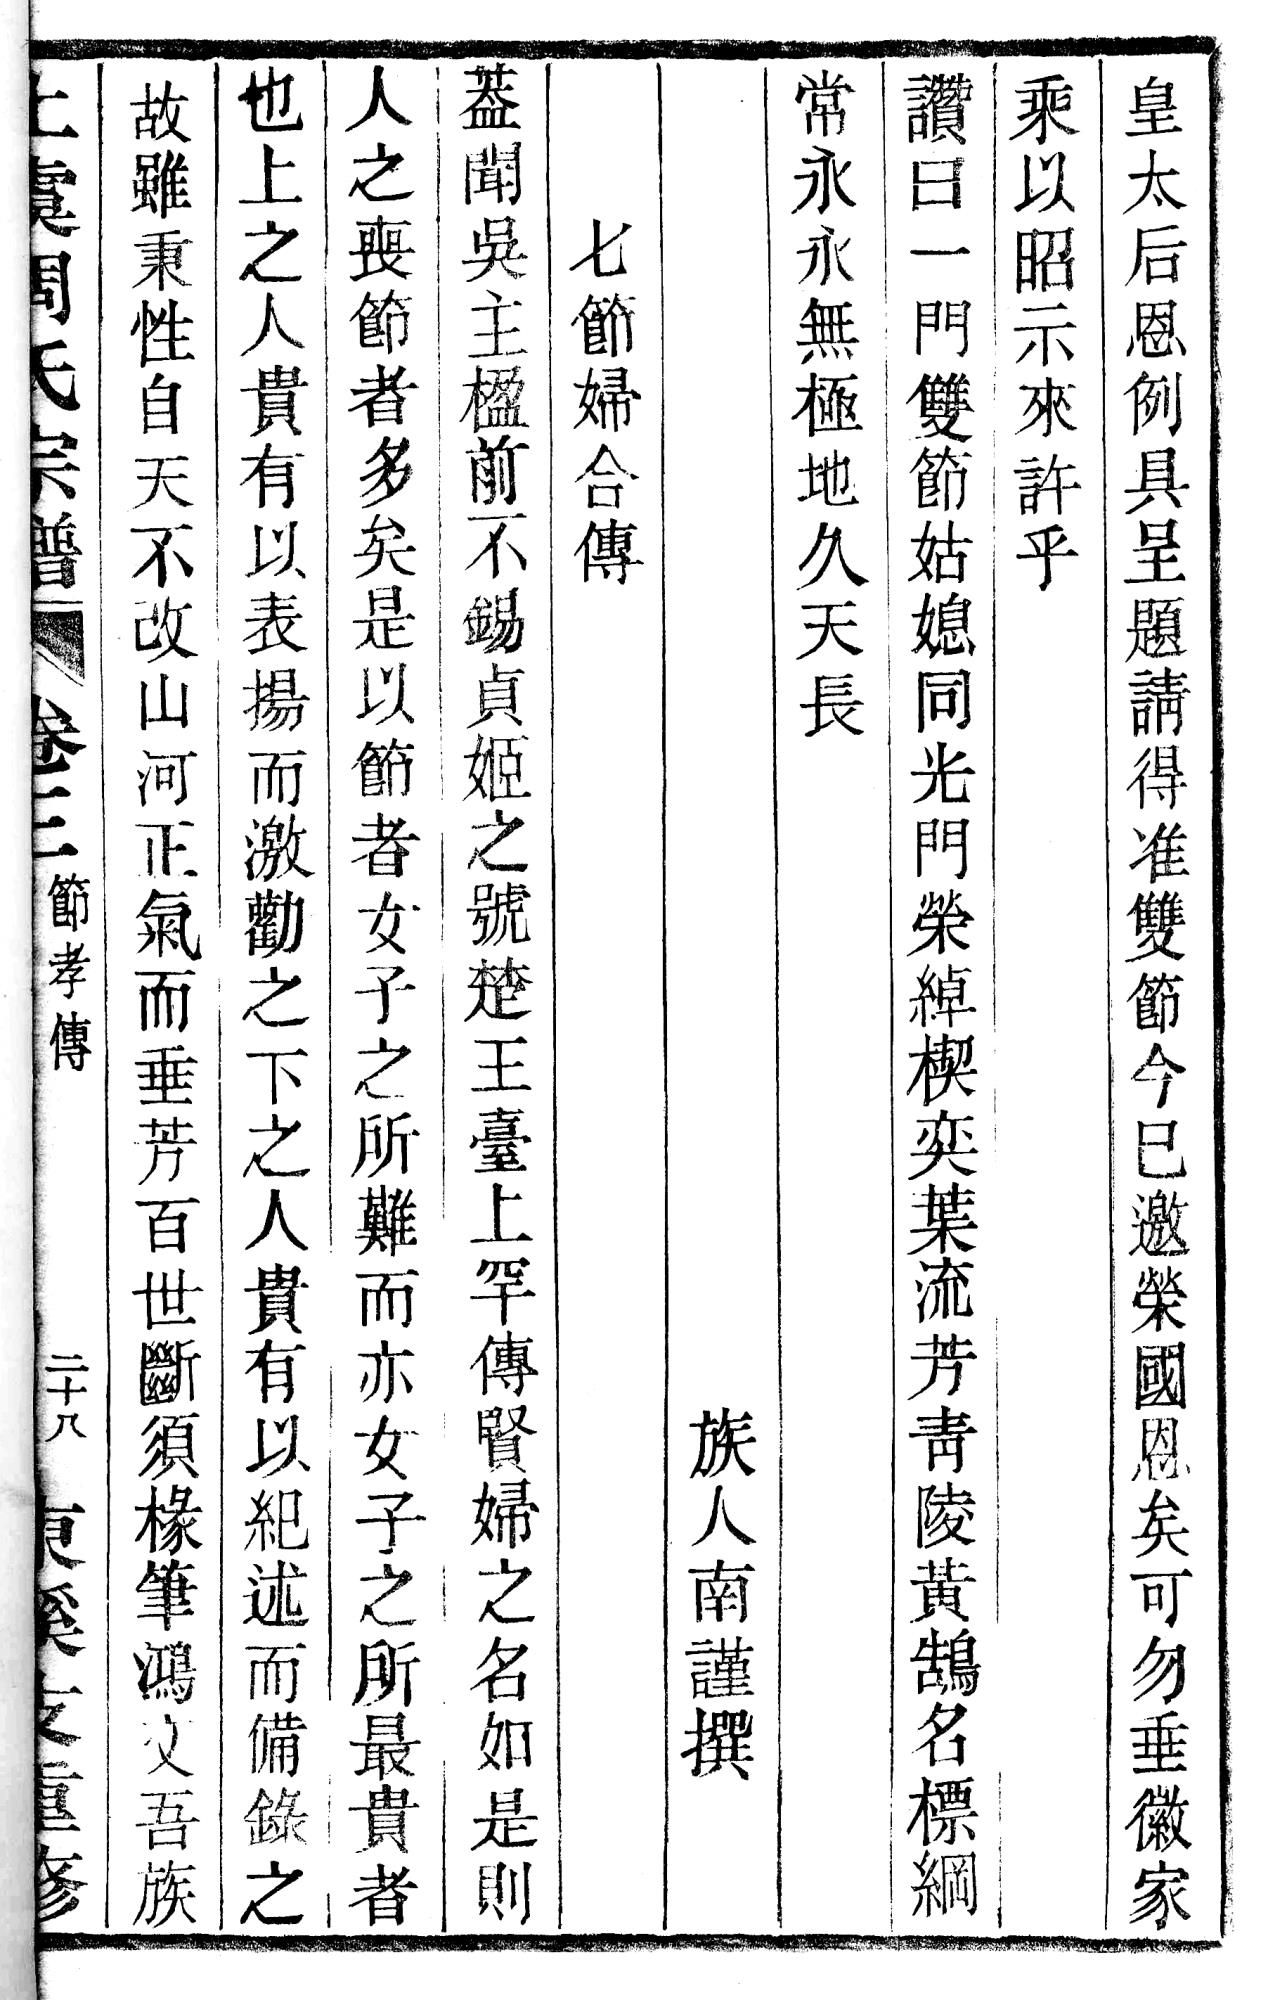 皇太后恩例具呈題請得准雙節今已邀榮國恩矣可勿垂徽家
乘以昭示來許乎
讚曰一門雙節姑媳同光門榮綽楔奕葉流芳青陵黃鵠名標綱
常永永無極地久天長
族人南謹撰
七節婦合傳
葢聞吳主楹前不錫貞姬之號楚王臺上罕傳賢婦之名如是則
人之喪節者多矣是以節者女子之所難而亦女子之所最貴者
也上之人貴有以表揚而激勸之下之人貴有以紀述而備錄之
故雖秉性自天不改山河正氣而垂芳百世斷須椽筆鴻文吾族
上虞周氏宗譜 卷三 節孝傳 二十八 東溪支重修